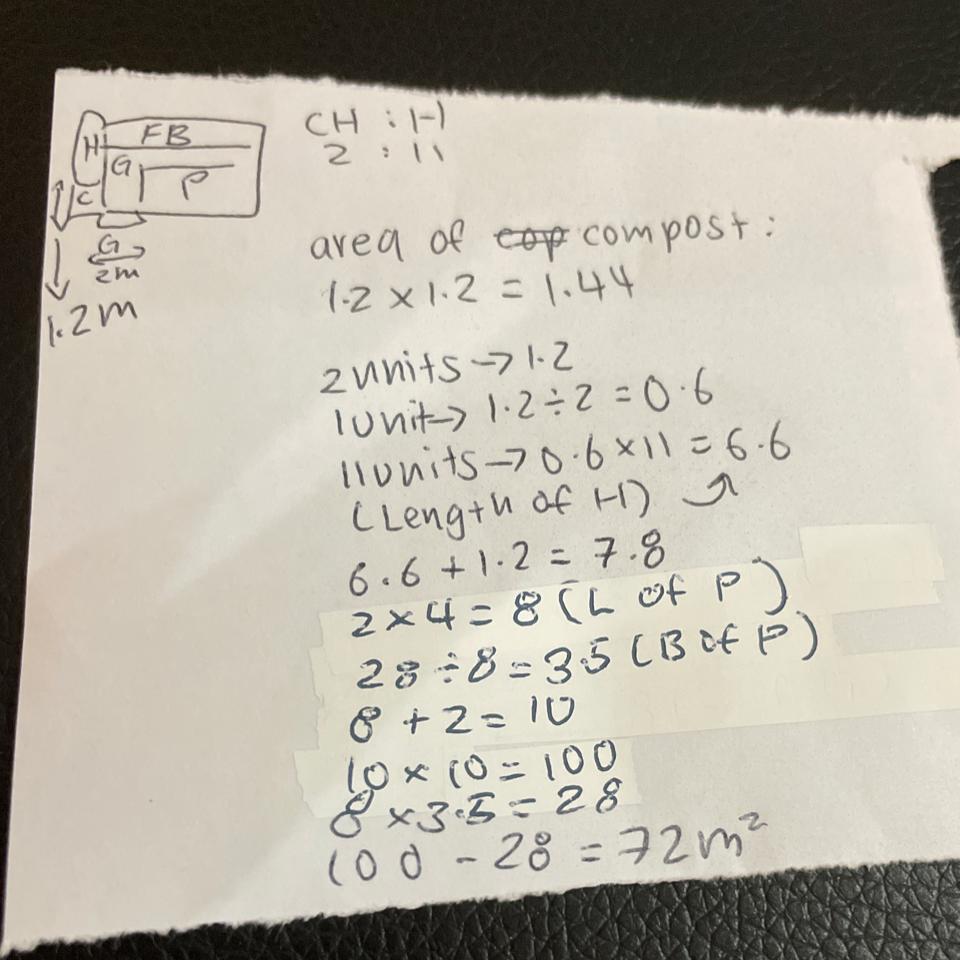 H FB
G P
C
G
2m
1.2m
CH : H
2 : 11
area of cop compost :
1.2 x 1.2 = 1.44
2 units → 1.2
1 unit → 1.2 ÷ 2 = 0.6
11 units → 0.6 × 11 = 6.6
(Length of H)
6.6 + 1.2 = 7.8
2 × 4 = 8 (L of P)
28 ÷ 8 = 3.5 (B of P)
8 + 2 = 10
10 × 10 = 100
8 × 3.5 = 28
100 - 28 = 72m²